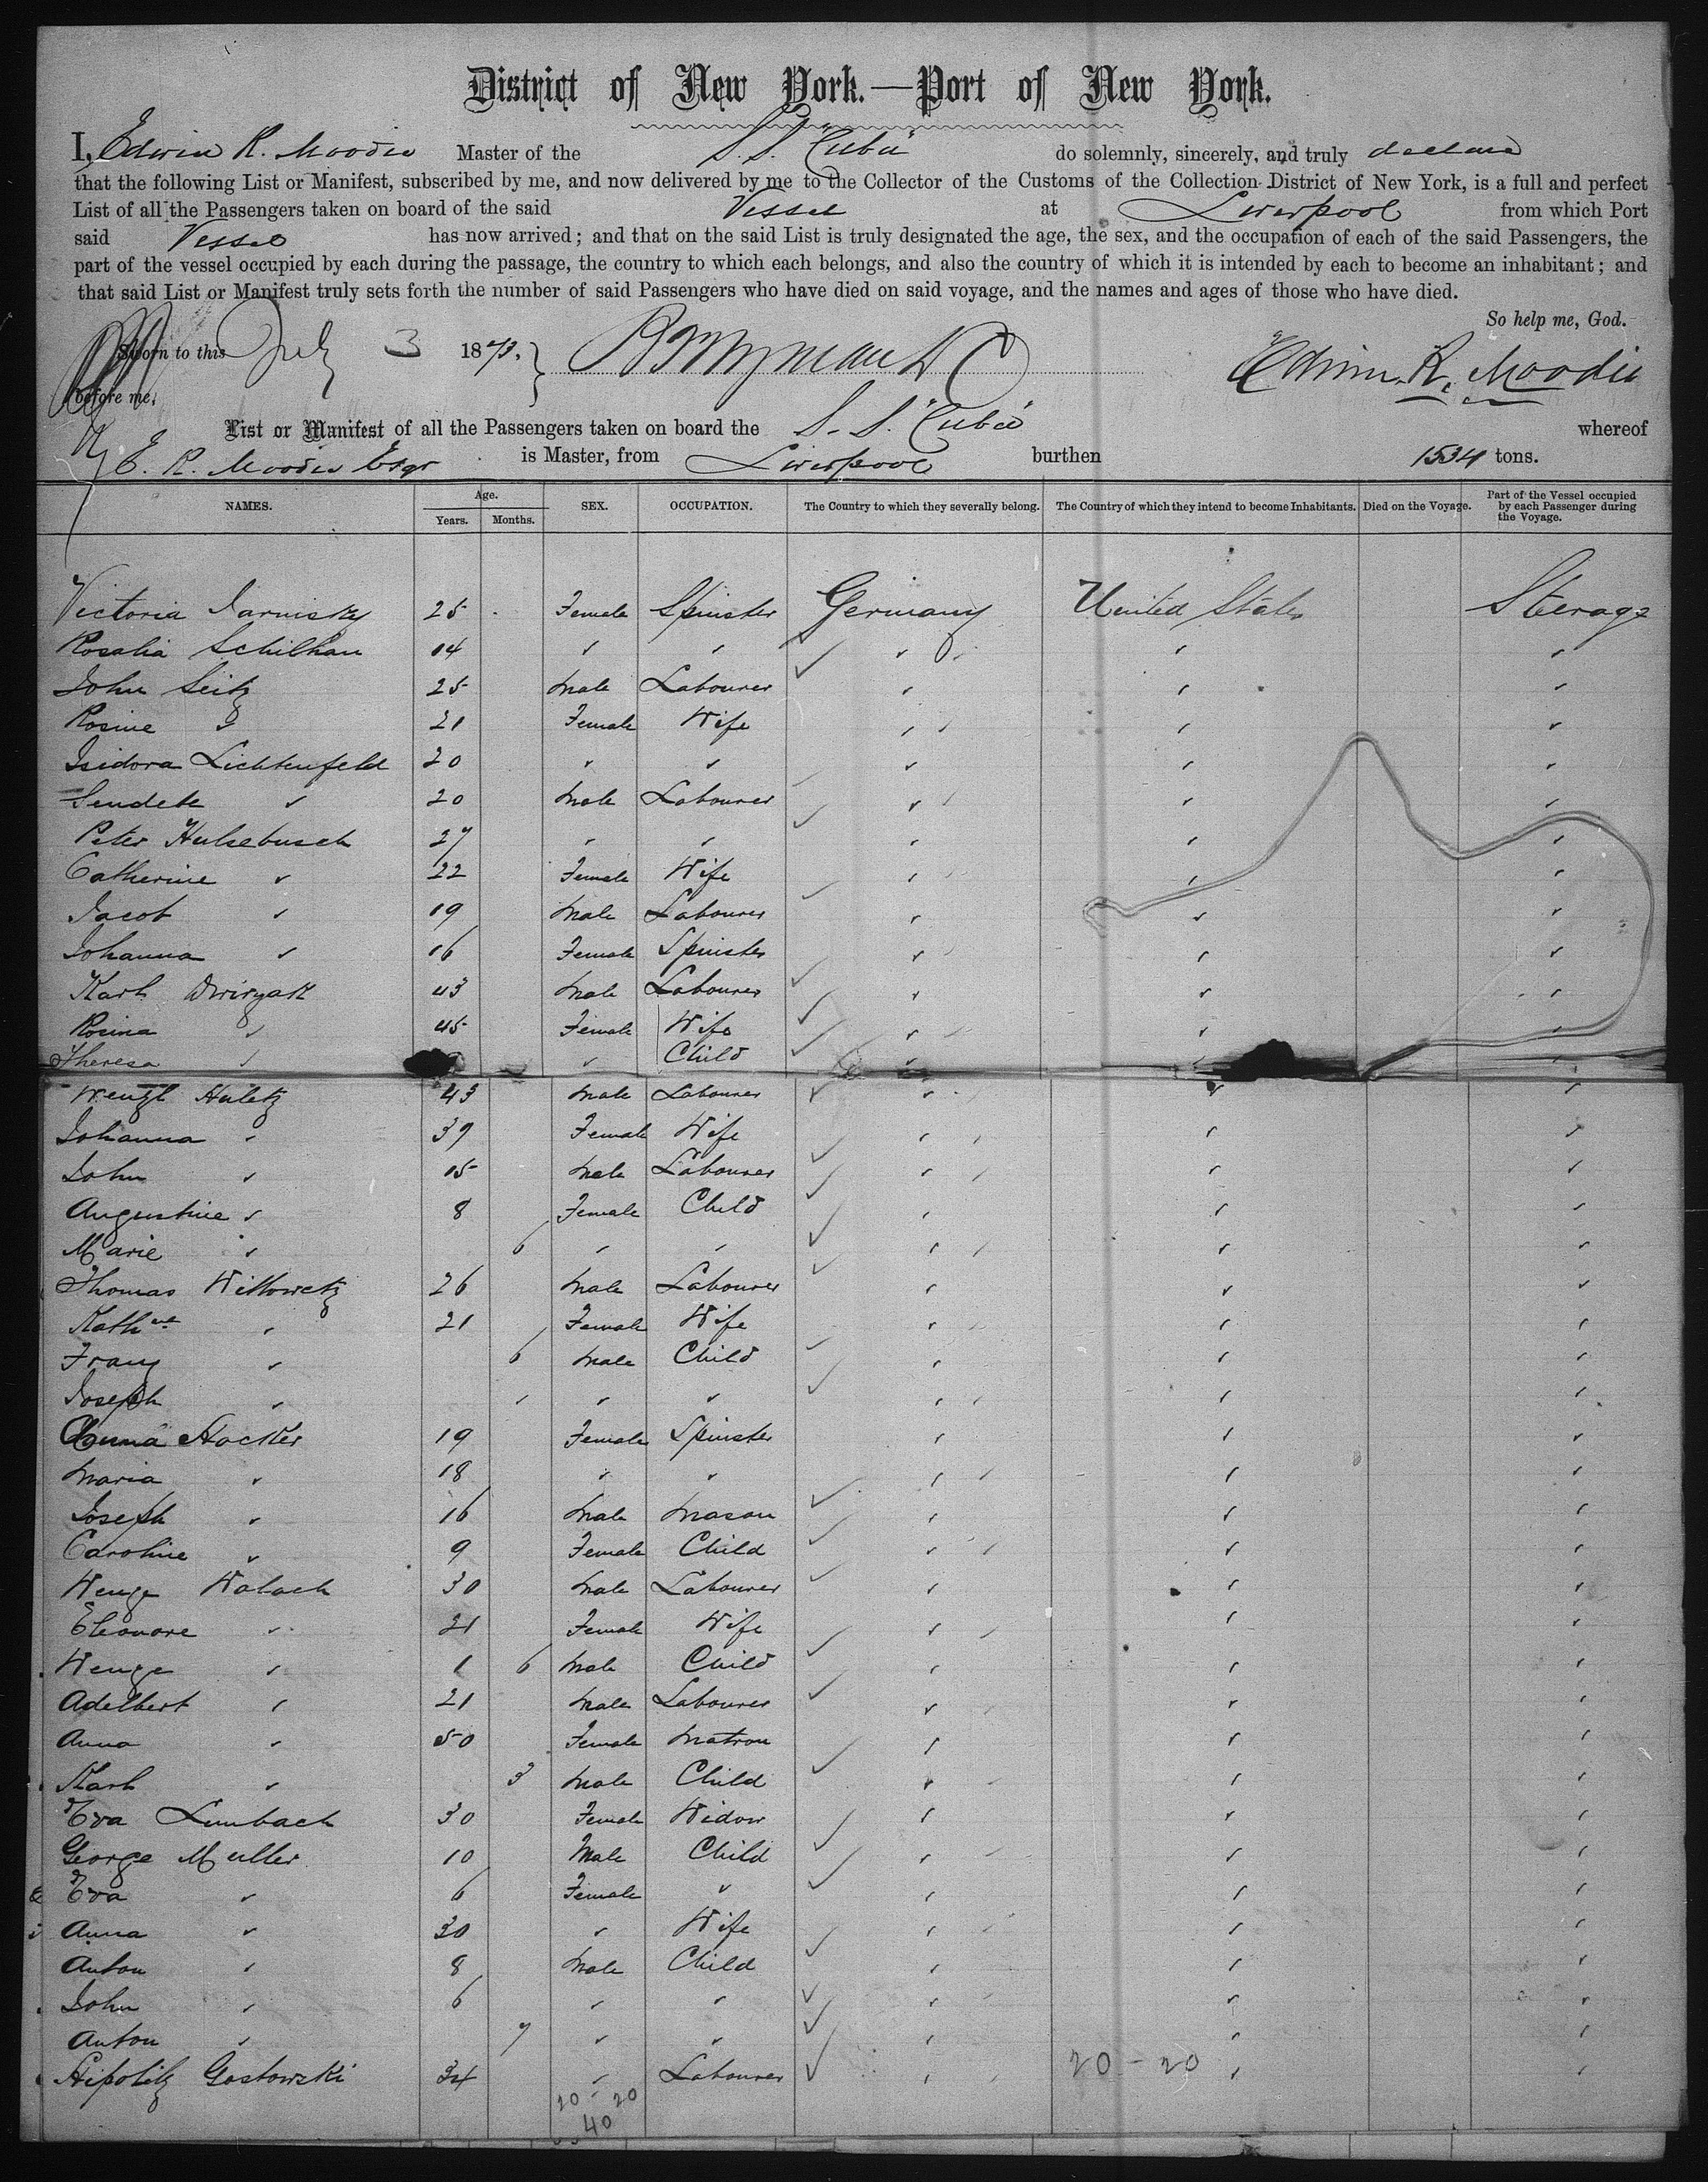 District of New York.—Port of New York.
I, Edwin R. Moodie Master of the S.S. "Cuba" do solemnly, sincerely, and truly declare
that the following List or Manifest, subscribed by me, and now delivered by me to the Collector of the Customs of the Collection District of New York, is a full and perfect
List of all the Passengers taken on board of the said Vessel at Liverpool from which Port
said Vessel has now arrived; and that on the said List is truly designated the age, the sex, and the occupation of each of the said Passengers, the
part of the vessel occupied by each during the passage, the country to which each belongs, and also the country of which it is intended by each to become an inhabitant; and
that said List or Manifest truly sets forth the number of said Passengers who have died on said voyage, and the names and ages of those who have died.
So help me, God.
Sworn to this July 3 1873, Edwin R. Moodie
before me,
List or Manifest of all the Passengers taken on board the S.S. "Cuba" whereof
E. R. Moodie Esqr is Master, from Liverpool burthen 1534 tons.
NAMES. Age. Years. Months. SEX. OCCUPATION. The Country to which they severally belong. The Country of which they intend to become Inhabitants. Died on the Voyage. Part of the Vessel occupied by each Passenger during the Voyage.
Victoria 25 Female Spinster Germany United States Steerage
Rosalia Schilhan 14 " " " " "
John Seitz 25 Male Labourer " " "
Rosine " 21 Female Wife " " "
Isidora Lichtenfeld 20 " " " " "
" 20 Male Labourer " " "
Peter Hulsebusch 27 " " " " "
Catherine " 22 Female Wife " " "
Jacob " 19 Male Labourer " " "
Johanna " 16 Female Spinster " " "
Karl 43 Male Labourer " " "
Rosina " 45 Female Wife " " "
Theresa " " Child " " "
Wenzl Huletz 43 Male Labourer " " "
Johanna " 39 Female Wife " " "
John " 15 Male Labourer " " "
Augustine " 8 Female Child " " "
Marie " 6 " " " " "
Thomas 26 Male Labourer " " "
Kathne " 21 Female Wife " " "
Franz " 6 Male Child " " "
Joseph " " " " " " "
Anna Hocker 19 Female Spinster " " "
Maria " 18 " " " " "
Joseph " 16 Male Mason " " "
Caroline " 9 Female Child " " "
Wenze Walach 30 Male Labourer " " "
Eleonore " 21 Female Wife " " "
Wenze " 1 6 Male Child " " "
Adelbert " 21 Male Labourer " " "
Anna " 50 Female Matron " " "
Karl " 3 Male Child " " "
Eva Limbach 30 Female Widow " " "
George Muller 10 Male Child " " "
Eva " 6 Female " " " "
Anna " 30 " Wife " " "
Anton " 8 Male Child " " "
John " 6 " " " " "
Anton " 7 " " " " "
Hipolitz Gostowski 34 " Labourer " " "
20 - 20
20 - 20
40